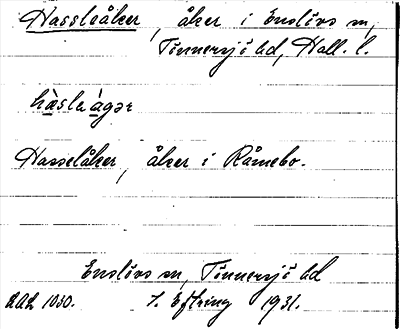 Hassleåker, åker i Enslövs sn,
Tönnersjö hd, Hall. l.
hàslɐàgər
Hasselåker, åker i Råmebo.
Enslövs sn, Tönnersjö hd
AAL 1030. J. Eftring 1931.